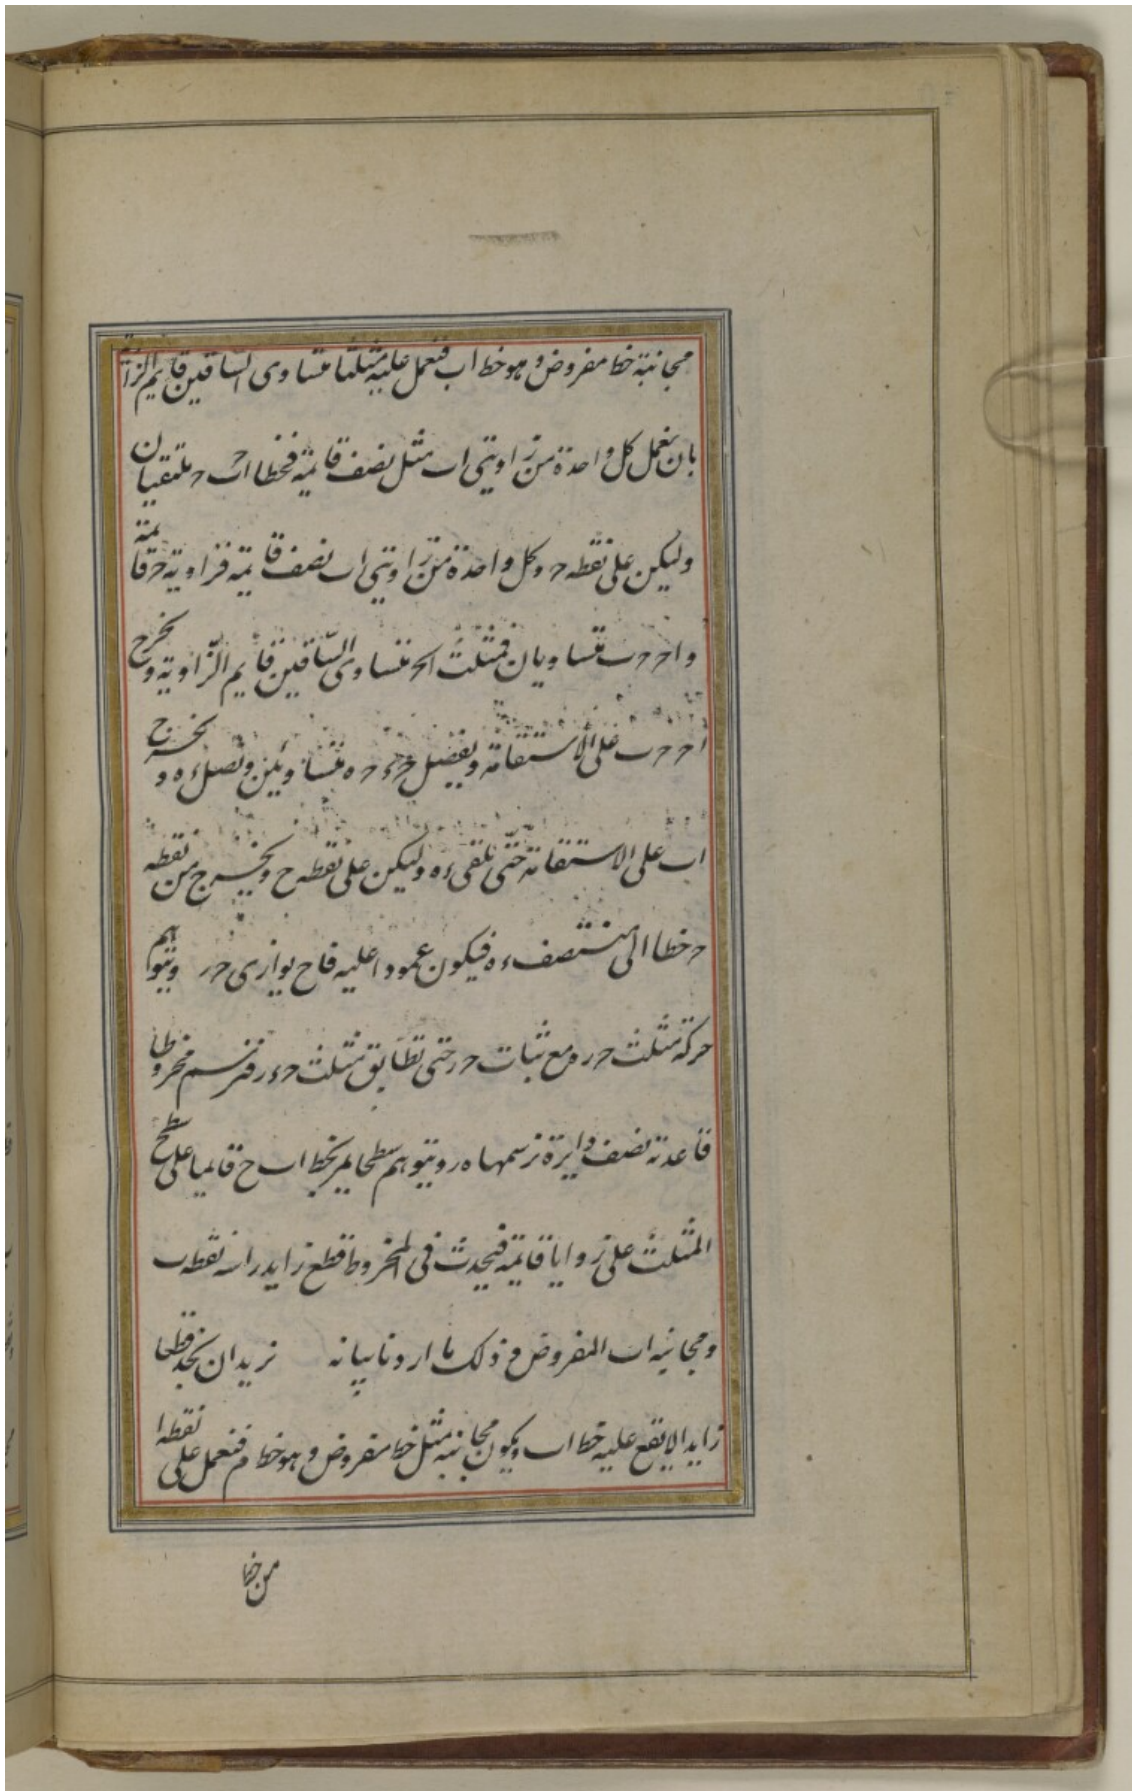 مجانبة خط مفروض وهو خط اب فنعمل عليه مثلثا متساوى الساقين قايم الزاوية
بان نعمل كل واحدة من زاويتى اب مثل نصف قايمة فخطا اح ب ح ملتقيان
وليكن على نقطه ح وكل واحدة من زاويتى اب نصف قايمة فزاوية ح قايمة
و اح ح ب متساويان فمثلث احب متساوى الساقين قايم الزاوية ونخرج
اح ح ب على الاستقامة ونفصل حء ح ه متساويين ونصل ء ه ونخرج
اب على الاستقامة حتى تلقى ء ه وليكن على نقطه ح ونخرج من نقطه
ح خطا الى منتصف ء ه فيكون عمودا عليه فاح يوازى ح ر ونتوهم
حركة مثلث ح ر ه مع ثبات ح ر حتى تطابق مثلث ح ء ر فترسم مخروطا
قاعدته نصف دايرة ترسمها ه ر ونتوهم سطحا يمر بخط اب ح قايما على سطح
المثلث على زوايا قايمة فيحدث فى المخروط قطع زايد راسه نقطه ب
ومجانبه اب المفروض وذلك ما اردنا بيانه نريد ان نجد قطعا
زايدا لا يقع عليه خط اب ويكون مجانبه مثل خط مفروض وهو خط م فنعمل على نقطه ا
من خط